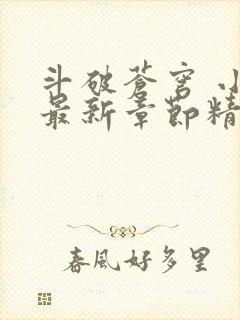 斗破苍穹 小
最新章節精
春風好多里